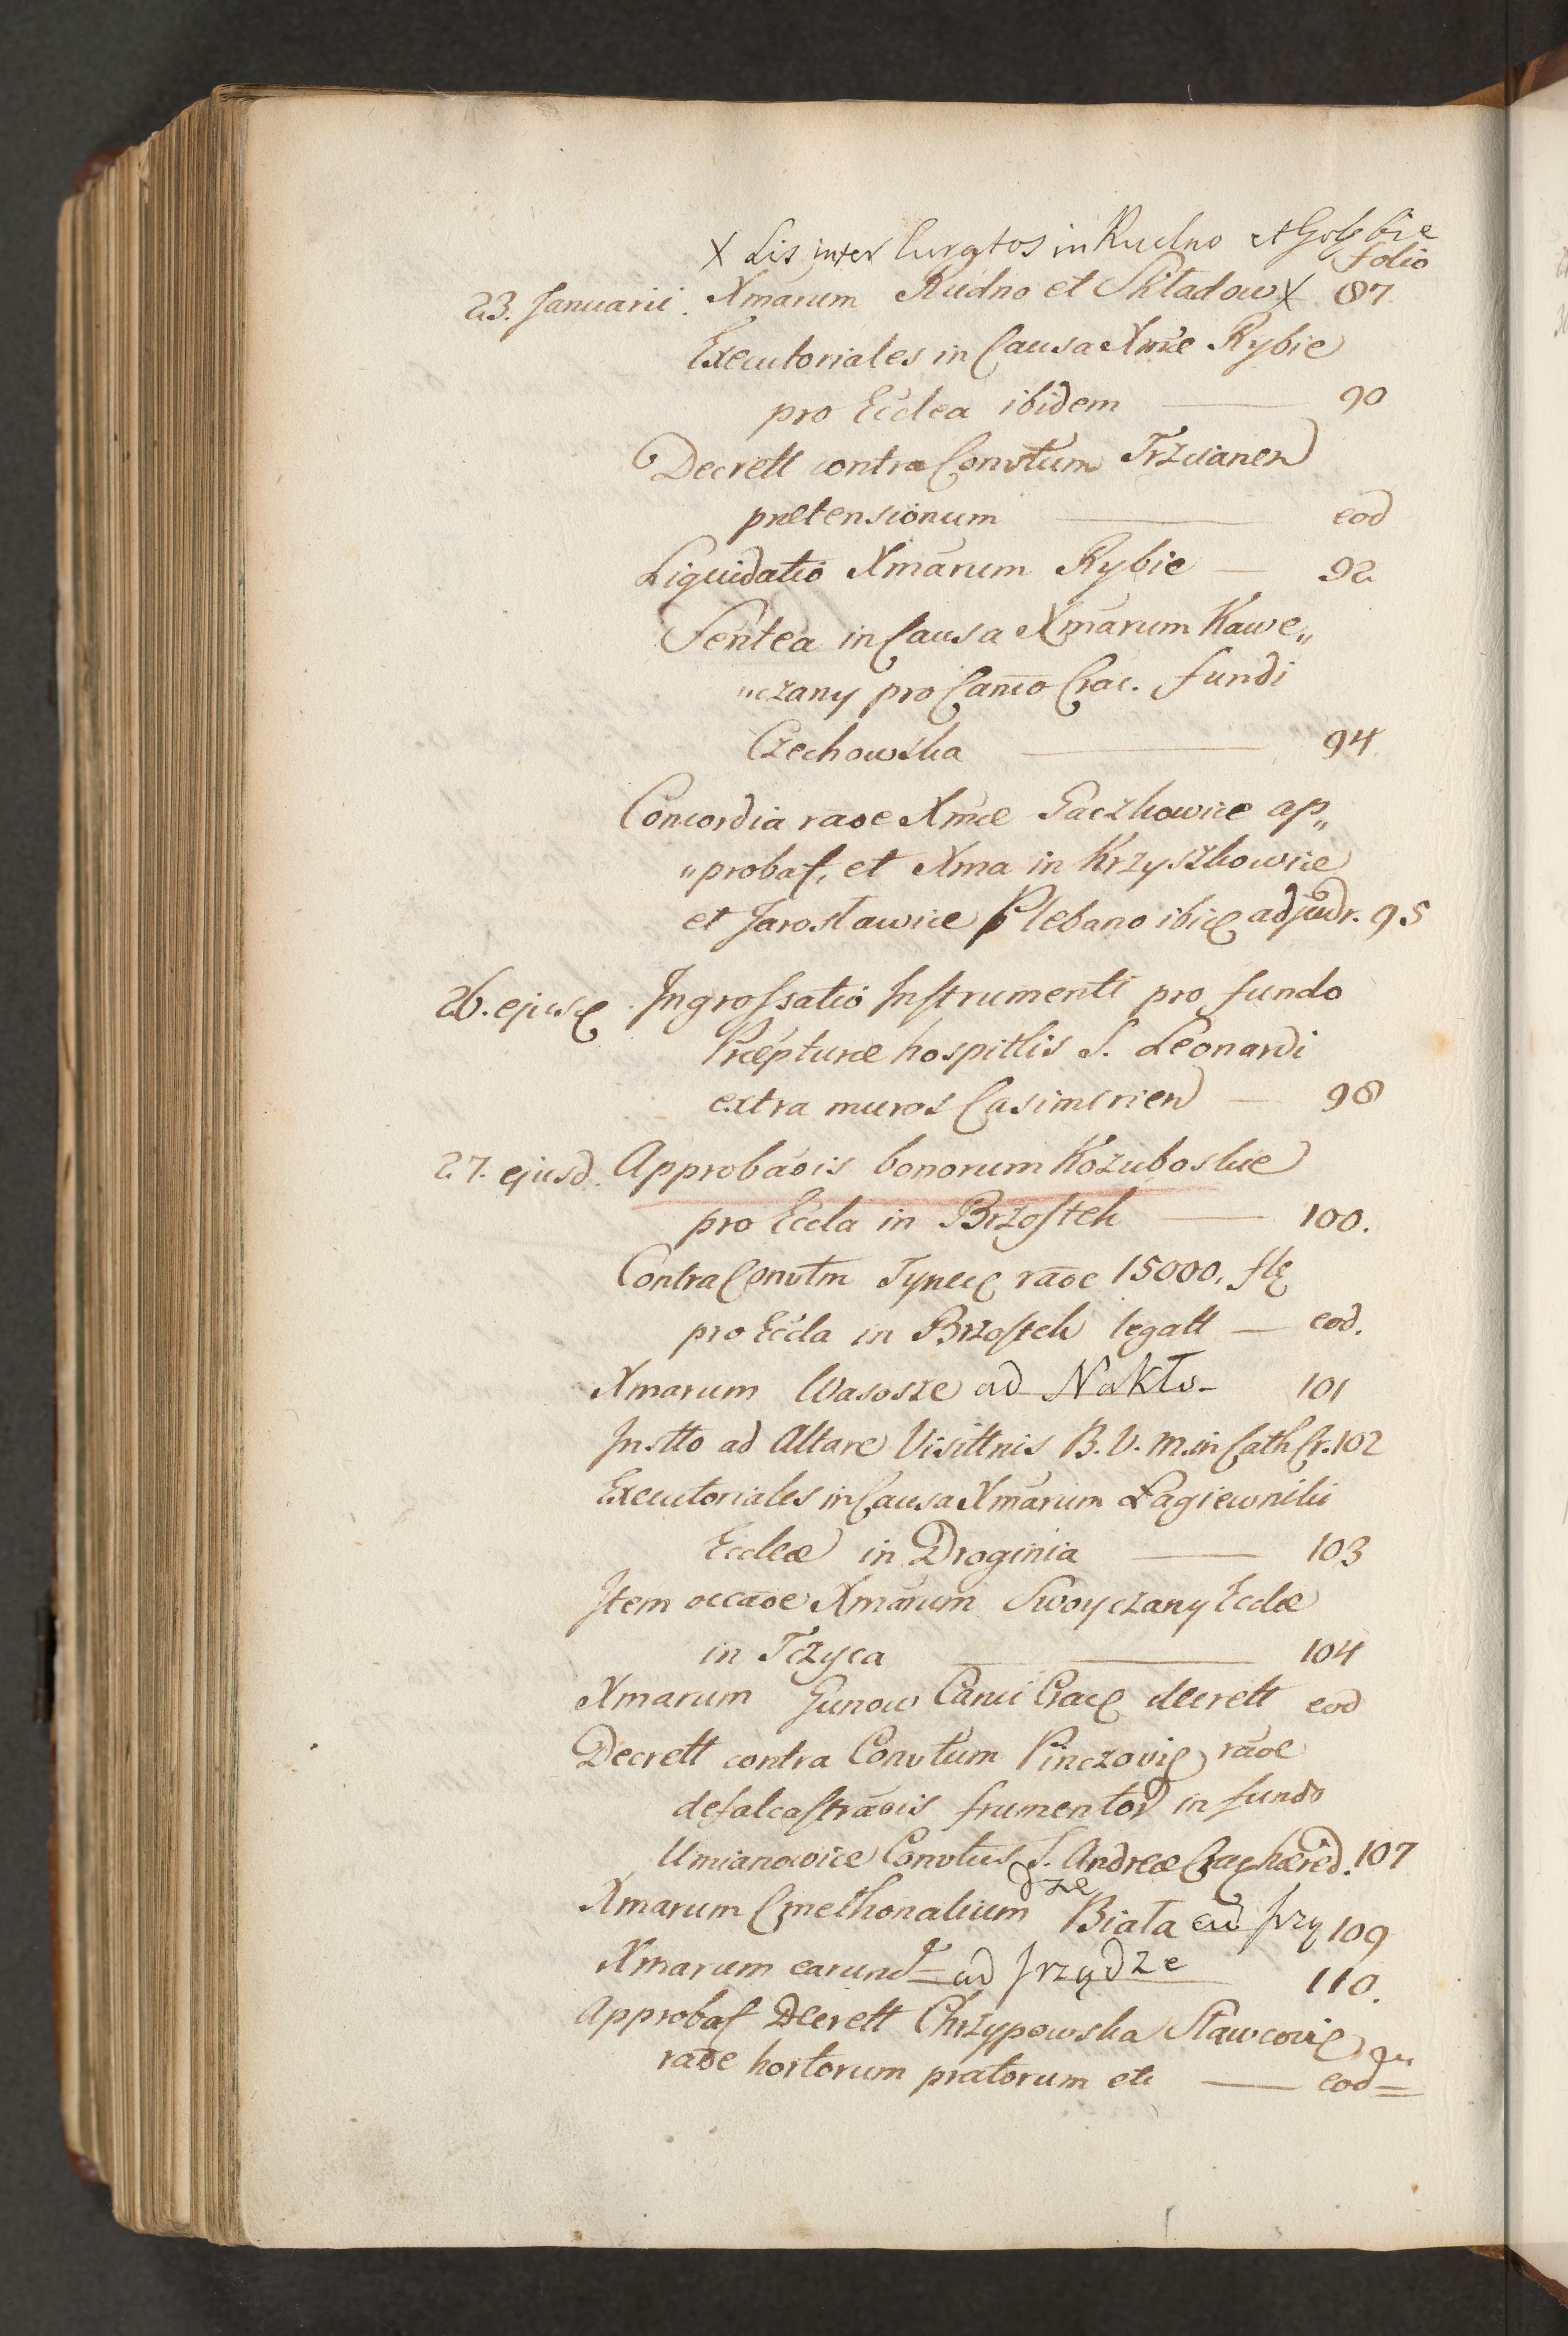 X Lis inter Curatos in Rudno et Gołębie
folio
23. Januarii. Xmarum Rudno et Składow X 87
Executoriales in Causa Xmæ Rybie
pro Ecclea ibidem — 90
Decrett contra Convtum Trzcianen
prætensionum — eod
Liquidatio Xmarum Rybie — 92
Sentea in Causa Xmarum Kawe„
„czany pro Canco Crac. fundi
Czechowska — 94
Concordia raoe Xmæ Paczkowice ap„
„probat, et Xma in Krzyszkowice
et Jarosławice Plebano ibid adjudr. 95
26. ejusd. Ingrossatio Instrumenti pro fundo
Præpturæ hospitlis S. Leonardi
extra muros Casimirien — 98
27. ejusd. Approbaois bonorum Kozuboskie
pro Eccla in Brzostek — 100.
Contra Convtm Tynec raoe 15000, fl
pro Eccla in Brzostek legatt — eod.
Xmarum Wasosze ad Nakło - 101
Instto ad Altare Visittnis B. V. M. in Cath Cr. 102
Executoriales in Causa Xmarum Łagiewniki
Eccleæ in Droginia — 103
Item occaoe Xmarum Swoyczany Eccleæ
in Tczyca — 104
Xmarum Gunow Canci Crac decrett eod
Decrett contra Convtum Pinczovie raoe
defalcastraois frumentor in fundo
Umianowice Convtus S. Andreæ Crac hæred. 107
Xmarum Cmethonalium Biała ad Irzą 109
dze
Xmarum earund = ad Irządze 110.
Approbat Decrett Chrzypowska Sławcovie
raoe hortorum pratorum etc — eod =